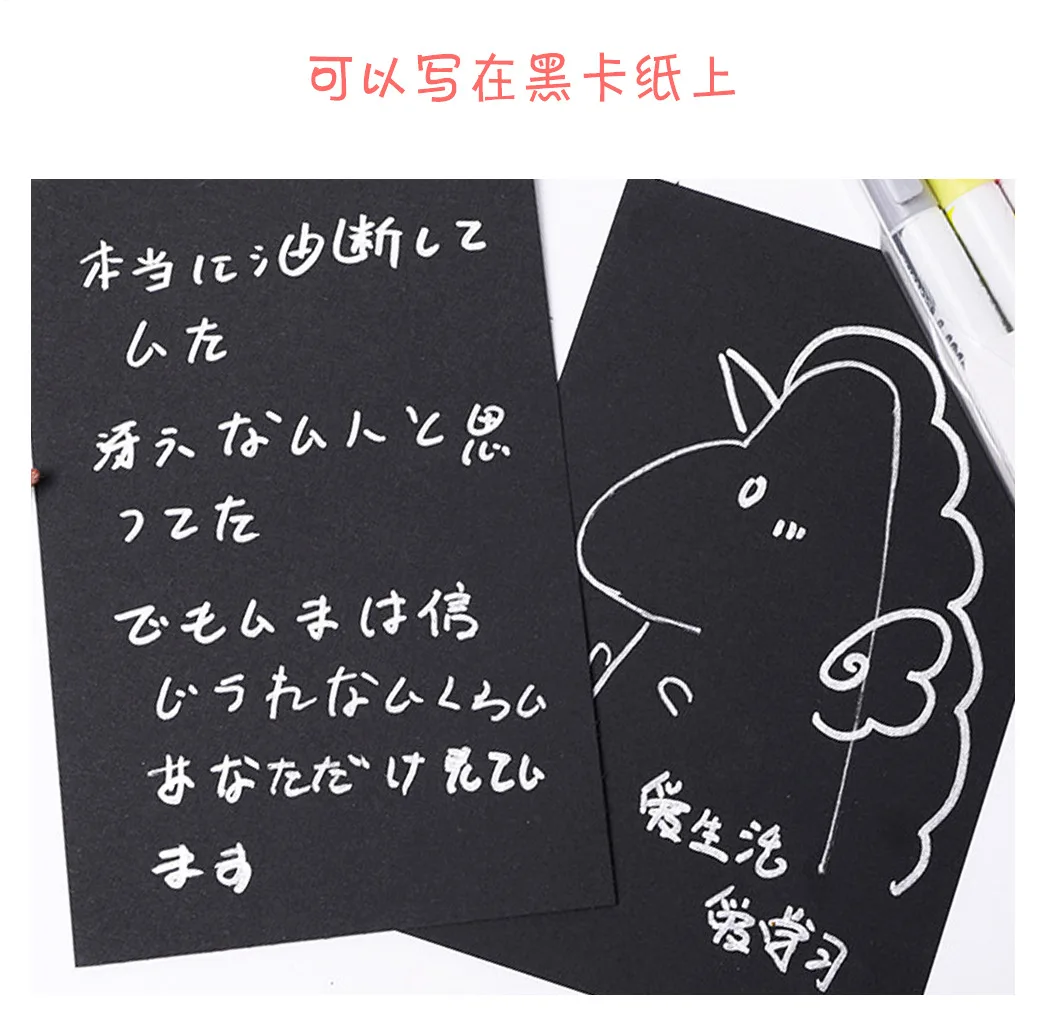 可以写在黑卡纸上
本当に油断して
いた
冴えないな人と思
ってた
でもいまは信
じられないくらい
あなただけ見てい
ます
爱生活
爱学习